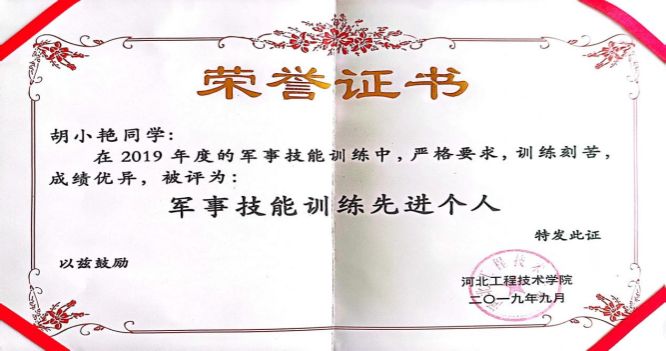 荣誉证书
胡小艳同学：
在2019年度的军事技能训练中，严格要求，训练刻苦，
成绩优异，被评为：
军事技能训练先进个人
特发此证
以兹鼓励
河北工程技术学院
二〇一九年九月